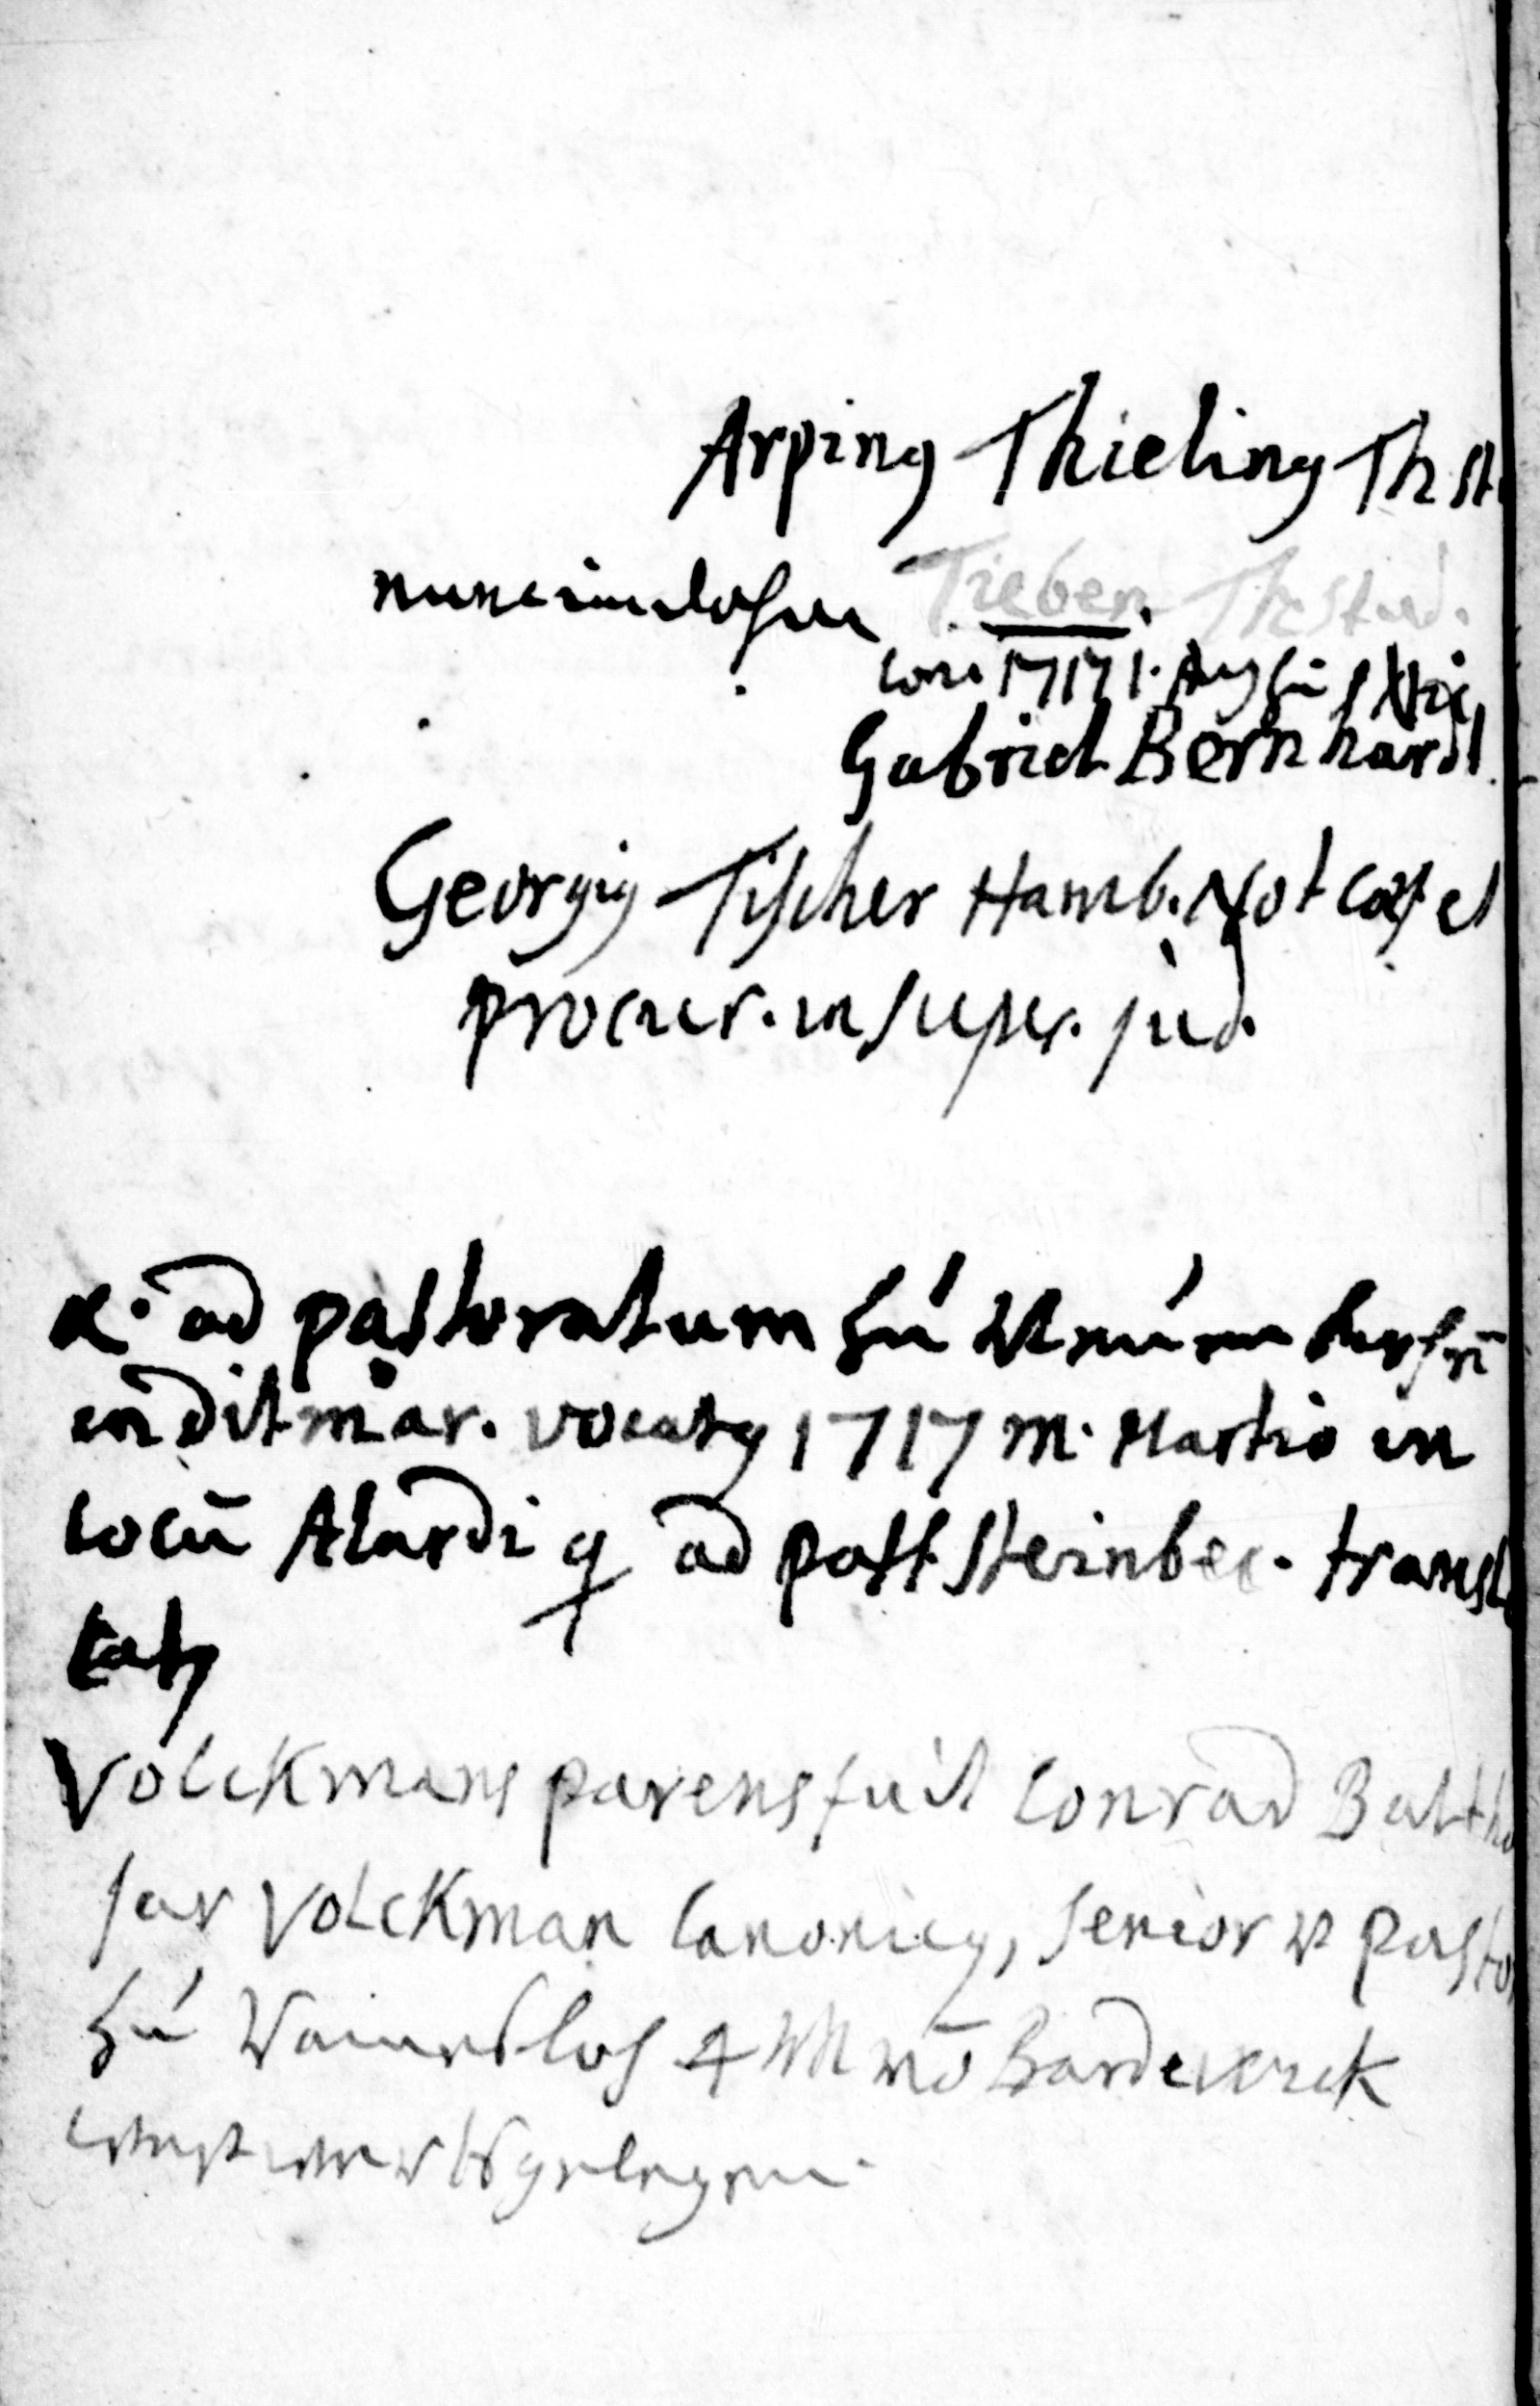 Arping Thieling Th. st
Tieben. Th. Stud.
1717 1. Aug
Gabriel Bernhard
Georgiꝰ Tischer Hamb. Not Caes. et
procur. in super. jud.
α. ad pastoratum zu
in ditmar. vocatꝰ 1717 m. Martio in
locū Alardi q ad past Steinbec. transl
tatꝰ
Volckmans parens fuit Conrad Baltha
sar Volckman Canonicꝰ, Senior u pasto
zu 4 Bardewick
gelegen.